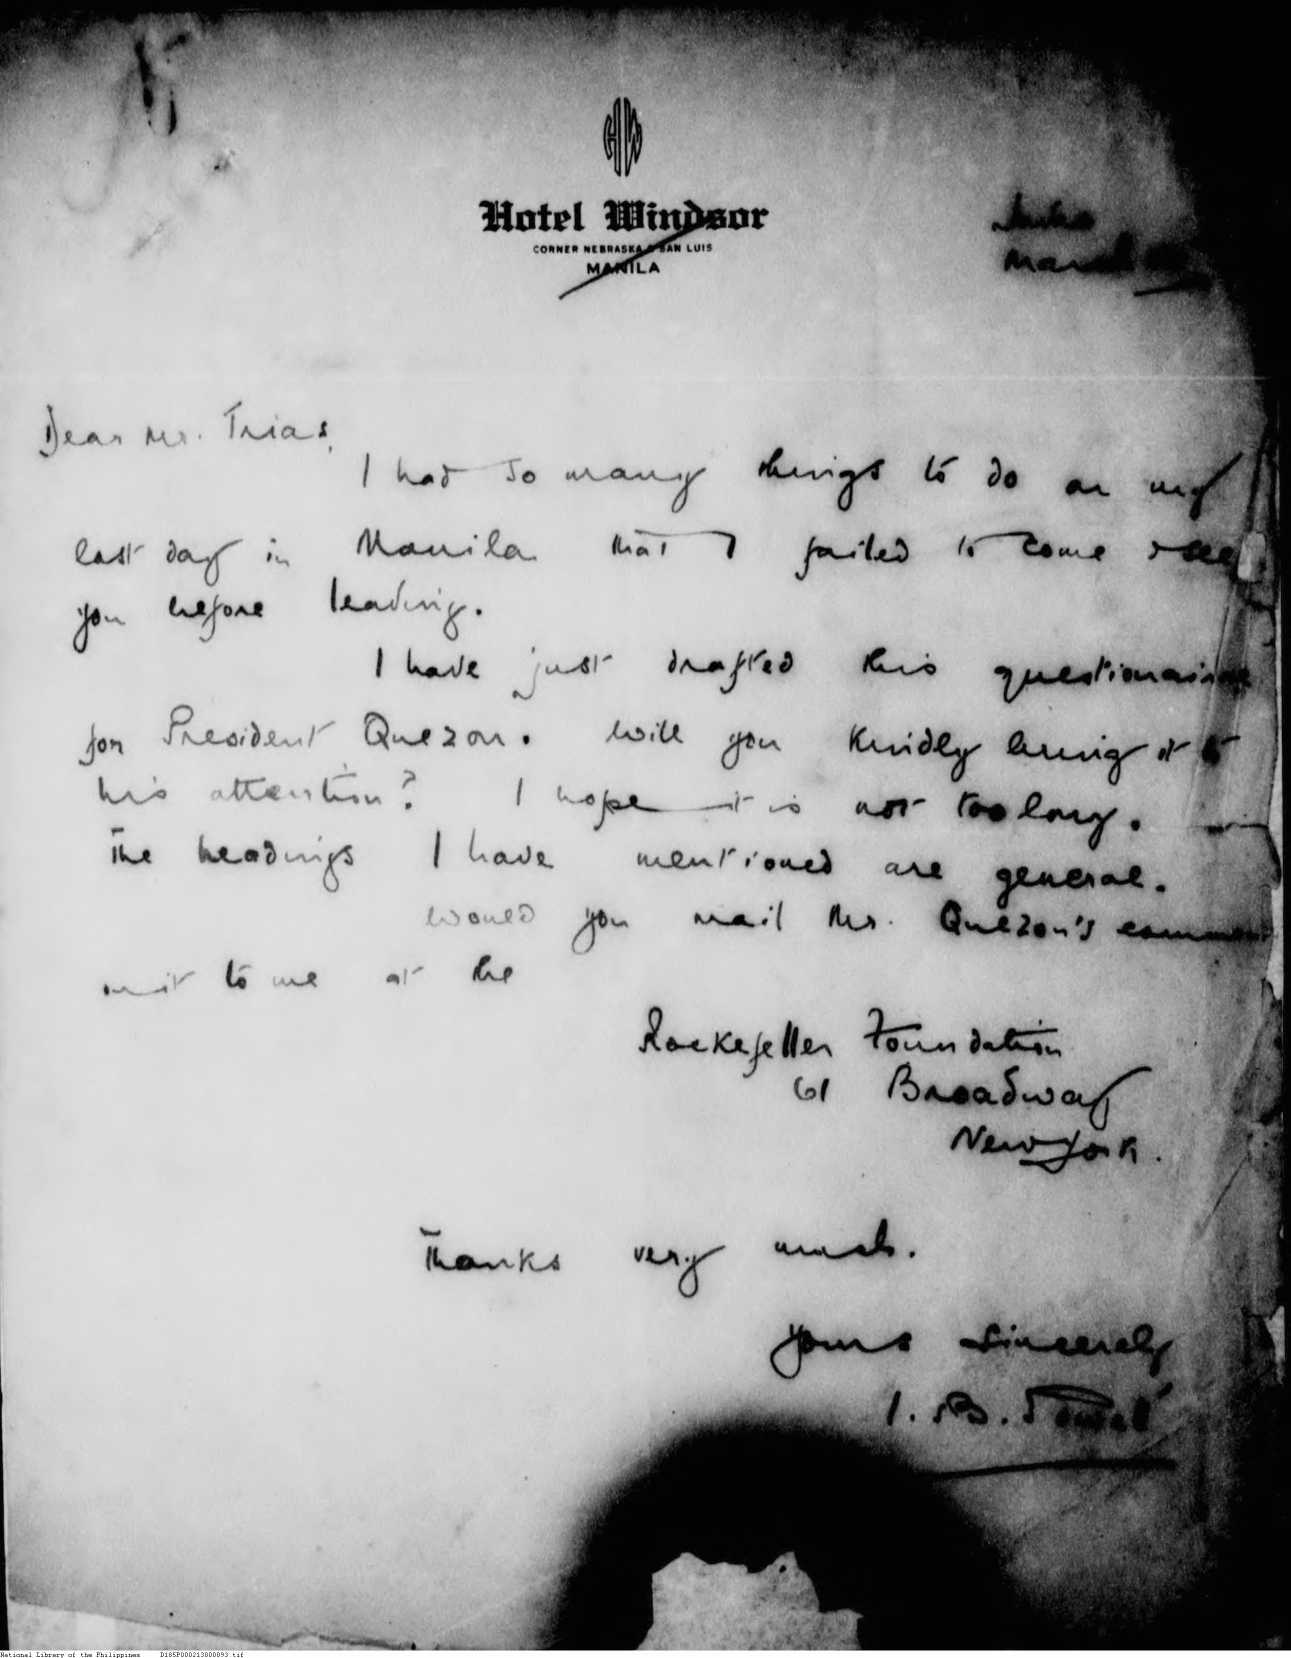 HW
Hotel Windsor
CORNER NEBRASKA & SAN LUIS
MANILA
March
Dear Mr. Trias,
I had so many things to do on my
last day in Manila that I failed to come & see
you before leaving.
I have just drafted this questionaire
for President Quezon. Will you kindly bring it to
his attention? I hope it is not too long.
The headings I have mentioned are general.
Would you mail Mr. Quezon's comment
on it to me at the
Rockefeller Foundation
61 Broadway
New York.
Thanks very much.
Yours sincerely
I. B.
National Library of the Philippines D185P000213000093.tif